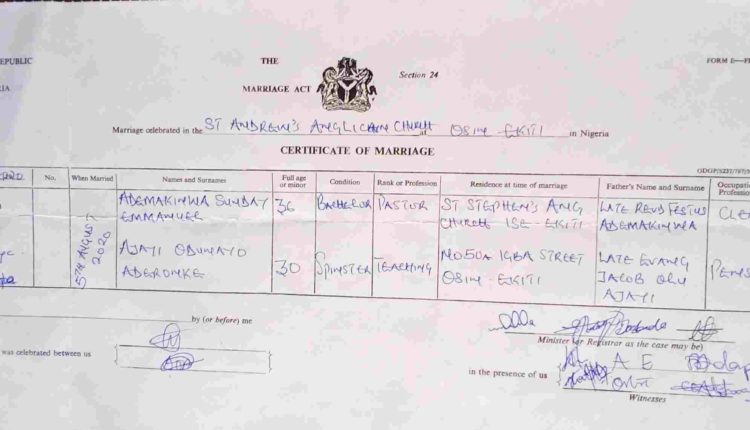 EPUBLIC
THE
MARRIAGE ACT
Section 24
FORM E—F
IA
Marriage celebrated in the ST ANDREW'S ANGLICAN CHURCH at OSIN - EKITI in Nigeria
CERTIFICATE OF MARRIAGE
No. When Married Names and Surnames Full age or minor Condition Rank or Profession Residence at time of marriage Father's Name and Surname Occupati Professio
5TH AUGUST 2020
ADEMAKINWA SUNDAY EMMANUEL 36 BACHELOR PASTOR ST STEPHEN'S ANG CHURCH ISE - EKITI LATE REVD FESTUS ADEMAKINWA CLE
AJAYI ODUNAYO ADERONKE 30 SPINSTER TEACHING NO50A IGBA STREET OSIN - EKITI LATE EVANG JACOB OLU AJAYI PENS
by (or before) me
Minister (or Registrar as the case may be)
was celebrated between us
in the presence of us A E
Witnesses